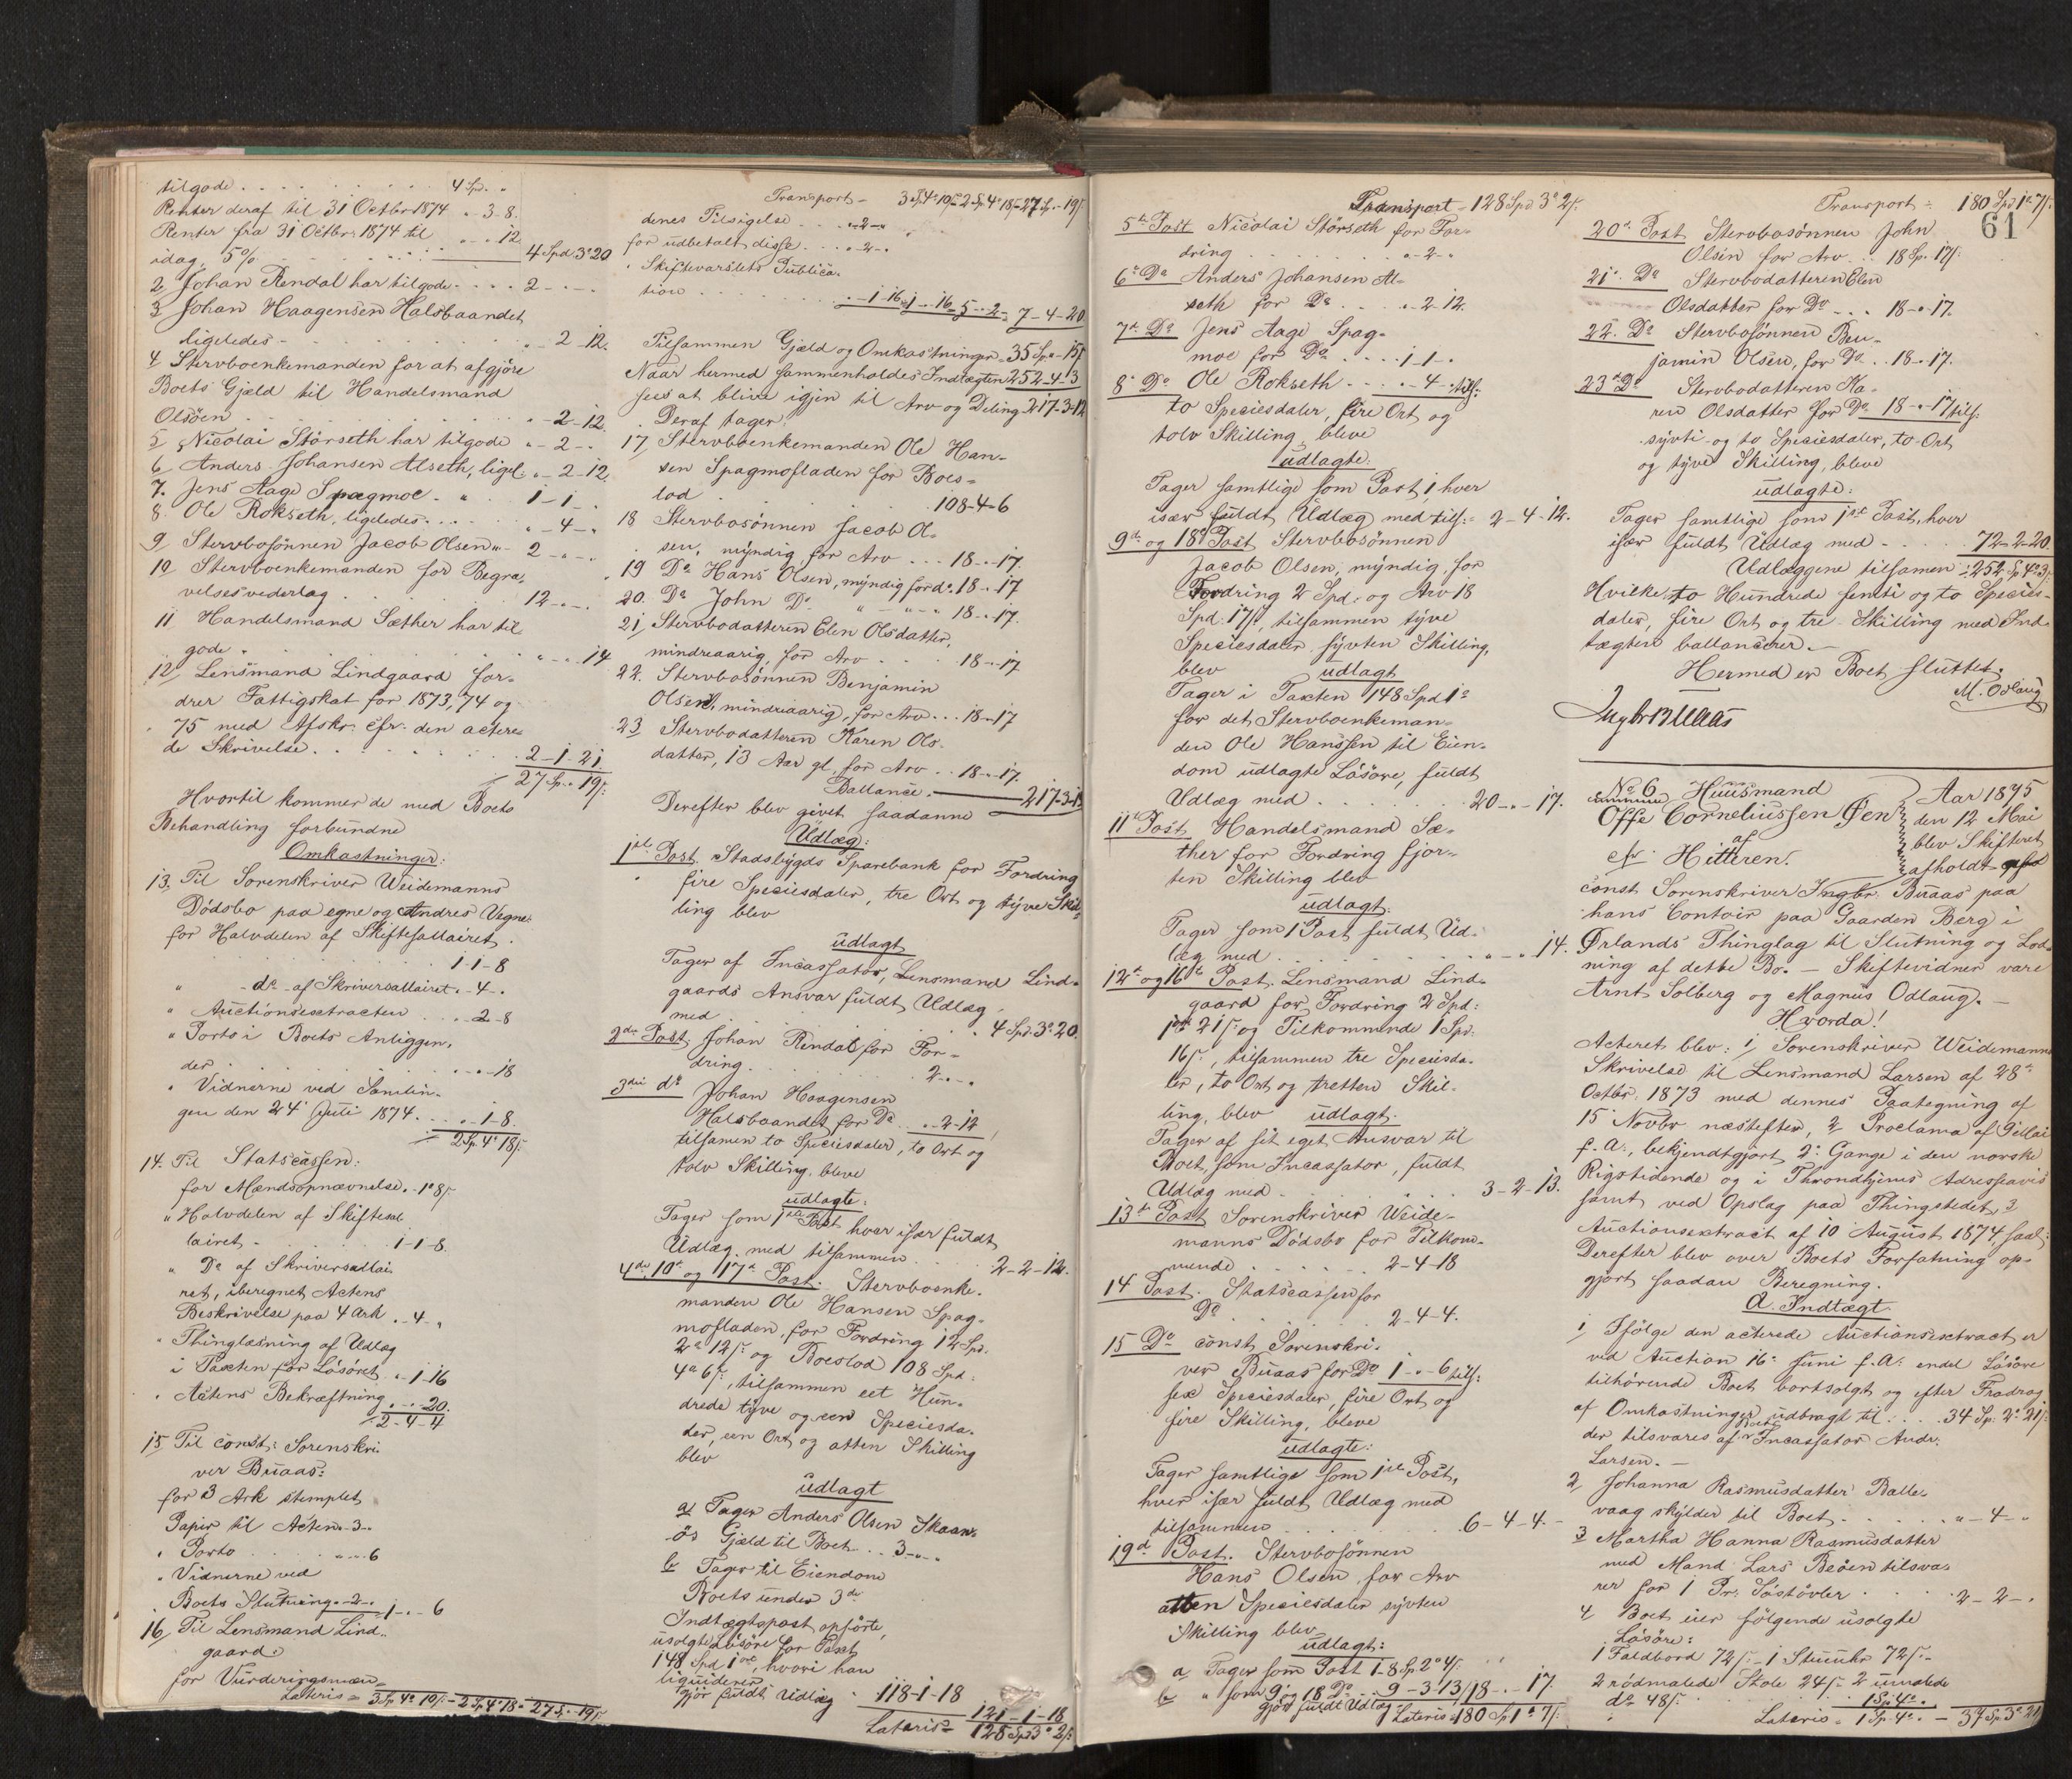 tilgode . . . . . . . . . . 4 Spd. "
Renter deraf til 31 Octbr 1874 . " - 3 - 8.
Renter fra 31 Octbr. 1874 til
idag, 5% . . . . . . . . . " - " - 12. 4 Spd. 3 " 20
2, Johan Rendal har tilgode . . . . 2 - " - "
3 Johan Haagensen Halsbaandet
ligeledes - . . . . . . . . " - 2 - 12.
4 Stervboenkemanden for at afgjöre
Boets Gjæld til Handelsmand
Olsöen . . . . . . . . " - 2 - 12.
5 Nicolai Störseth har tilgode " - 2 - "
6, Anders Johansen Alseth, ligel: " - 2 - 12.
7. Jens Aage Spagmoe . " . 1 - 1 - "
8. Ole Rokseth, ligeledes . . . . " - 4 - "
9, Stervbosönnen Jacob Olsen " - 2 - " - "
10 Stervboenkemanden for Begra-
velsesvederlag . . . . . . 12 - " - "
11 Handelsmand Sæther har til
gode . . . . . . . . " - " - 14
12, Lensmand Lindgaard for-
drer Fattigskat for 1873, 74 og
75 med Afskr. cfr. den actere-
de Skrivelse . . . . . . . 2 - 1 - 21.
27 Sp. " 19 ß.
Hvortil kommer de med Boets
Behandling forbundne
Omkastninger:
13, Til Sorenskriver Weidemanns
Dödsbo paa egne og Andres Vegne:
for Halvdelen af Skiftesallairet.
. . . . . . . . 1 - 1 - 8
" - do - af Skriversallairet . " - 4 - "
" Auctionsextracten . . . " - 2 - 8
" Porto i Boets Anliggen-
der . . . . . . . . " - " - 18
" Vidnerne ved Samlin-
gen den 24 Juli 1874 . . . . " - 1 - 8.
2 Sp. 4 " 18 ß.
14. Til Statscassen:
for Mændsopnævnelse . " - 1 " 8 ß.
" Halvdelen af Skiftesal
lairet - . . . . . . 1 - 1 - 8.
" Do af Skriversallai-
ret, iberegnet Actens
Beskrivelse paa 4 Ark . " - 4 - "
" Thinglæsning af Udlæg
i Taxten for Lösöret . " - 1 - 16
" Actens Bekræftning . " - " - 20.
2 - 4 - 4
15, Til const: Sorenskri
ver Buaas:
for 3 Ark stemplet
Papir til Acten " - 3 - "
" Porto . . . . . " - " - 6
" Vidnerne ved
Boets Slutning " - 2 - " 1 - " - 6
16, Til Lensmand Lind-
gaard:
for Vurderingsmæn-
Lateris = 3 Sp. 4 " 10 ß. - 2 Sp. 4 " 18 - 27 Sp. " 19 ß.
Transport - 3 Sp. 4 " 10 ß. - 2 Sp. 4 " 18 ß. - 27 Sp. " - 19 ß.
denes Tilsigelse . . . " - 2 - "
for udbetalt disse . . . . " - 2 - "
" Skiftevarslets Publica-
tion . . . . . " - 1 - 16 - 1 - " - 16 - 5 - " - 2 - 7 - 4 - 20
Tilsammen Gjæld og Omkastninger - 35 Sp. " - 15 ß.
Naar hermed sammenholdes Indtægten 252 - 4 - 3
sees at blive igjen til Arv og Deling 217 - 3 - 12
Deraf tager:
17, Stervboenkemanden Ole Han-
sen Spagmofladen for Boes-
lod . . . . . . . . 108 - 4 - 6
18 Stervbosönnen Jacob Ol-
sen, myndig for Arv . . . 18 - " - 17.
19 Do Hans Olsen, myndig for do 18 - " - 17
20. Do John Do " - " - " 18 - " - 17.
21, Stervbodatteren Elen Olsdatter,
mindreaarig for Arv . . . . 18 - " - 17
22. Stervbosönnen Benjamin
Olsen, mindreaarig, for Arv . . . 18 - " - 17
23 Stervbodatteren Karen Ols-
datter, 13 Aar gl. for Arv . . 18 - " - 17.
Ballance . 217 - 3 - 12
Derefter blev givet saadanne
Udlæg:
1ste Post. Stadsbygds Sparebank for Fordring
fire Speciesdaler, tre Ort og tyve Skil-
ling blev
udlagt
Tager af Incassator, Lensmand Lind-
gaards Ansvar fuldt Udlæg
med . . . . . . . . . 4 Spd. 3 " 20.
2den Post. Johan Rendal for For-
dring . . . . . . . . 2 - " - "
3die do Johan Haagensen
Halsbaandet for Do . . " - 2 - 12
tilsamen to Speciesdaler, to Ort og
tolv Skilling, bleve
udlagte:
Tager som 1ste Post hver især fuldt
Udlæg med tilsammen . . . . 2 - 2 - 12.
4de, 10de og 17de Post. Stervboenke-
manden Ole Hansen Spag-
mofladen, for Fordring 12 Spd.
2 " 12 ß. og Boeslod 108 Spd.
4 " 6 ß., tilsammen eet Hun-
drede tyve og een Speciesda-
ler, een Ort og atten Skilling
blev
udlagt
a, Tager Anders Olsen Skaan-
ös Gjæld til Boet . . 3 - " - "
b Tager til Eiendom
Boets under 3de
Indtægtspost opförte,
usolgte Lösöre for Taxt
148 Spd 1 ort, hvori han
liquiderer
Gjör fuldt Udlæg . 118 - 1 - 18
121 - 1 - 18
Lateris = 128 Spd. 3 " 2 ß.
Transport - 128 Spd 3 " 2 ß.
5te Post Nicolai Störseth for For-
dring . . . . . . . . " - 2 - "
6te Do Anders Johansen Al-
seth for Do . . . . " - 2 - 12.
7de Do Jens Aage Spag-
moe for Do . . . . . 1 - 1 - "
8. Do Ole Rokseth . . . . " - 4 - " tils:
to Speciesdaler, fire Ort og
tolv Skilling, bleve
udlagte:
Tager samtlige som Post 1, hver
især fuldt Udlæg med tils: - 2 - 4 - 12.
9de og 18de Post Stervbosönnen
Jacob Olsen, myndig, for
Fordring 2 Spd. og Arv 18
Spd. 17 ß., tilsammen tyve
Speciesdaler sytten Skilling,
blev udlagt
Tager i Taxten 148 Spd 1 "
for det Stervboenkeman-
den Ole Hanssen til Eien-
dom udlagte Lösöre, fuldt
Udlæg med . . . . . . . . 20 - " - 17.
11te Post Handelsmand Sæ-
ther for Fordring fjor-
ten Skilling blev
udlagt.
Tager som 1 Post fuldt Ud-
læg med . . . . . . . . . . " - " - 14.
12te og 16de Post. Lensmand Lind-
gaard for Fordring 2 Spd.
1 ort 21 ß. og Tilkommende 1 Spd.
16 ß., tilsammen tre Speciesda-
ler, to Ort og tretten Skil-
ling, blev udlagt.
Tager af sit eget Ansvar til
Boet, som Incassator, fuldt
Udlæg med . . . . . . . . 3 - 2 - 13.
13de Post Sorenskriver Weide-
manns Dödsbo for Tilkom-
mende . . . . . . 2 - 4 - 18
14 Post. Statscassen for
Do . . . . . . . . 2 - 4 - 4.
15 Do const. Sorenskri-
ver Buaas for Do 1 - " - 6 tils:
sex Speciesdaler, fire Ort og
fire Skilling, bleve
udlagte:
Tager samtlige som 1ste Post,
hver især fuldt Udlæg med
tilsammen . . . . . . . . . 6 - 4 - 4. -
19de Post. Stervbosönnen
Hans Olsen, for Arv
atten Speciesdaler sytten
Skilling blev
udlagt:
a Tager som Post 1 - 8 Sp. 2 " 4 ß.
b, " som 9 og 18 Do . . 9 - 3 " 13 / 18 - " - 17.
Gjör fuldt Udlæg
Lateris = 180 Sp 1 " 7 ß.
61
Transport - 180 Spd 1 " 7 ß.
20de Post Stervbosönnen John
Olsen for Arv . . . 18 Sp. " 17 ß.
21. Do Stervbodatteren Elen
Olsdatter for Do . . . 18 - " 17.
22. Do Stervbosönnen Ben-
jamin Olsen, for Do . . 18 - " 17.
23de Do Stervbodatteren Ka-
ren Olsdatter for Do 18 - " - 17 tils:
sytti og to Speciesdaler, to Ort
og tyve Skilling, bleve
udlagte:
Tager samtlige som 1ste Post, hver
især fuldt Udlæg med - . . . . 72 - 2 - 20
Udlæggene tilsamen = 252 Sp 4 " 3 ß.
Hvilke to Hundrede femti og to Species-
daler, fire Ort og tre Skilling med Ind-
tægten ballancerer. -
Hermed er Boet sluttet.
M. Odlaug
Ingbr Buaas
No 6 Huusmand
Offe Corneliussen Øen
af
Hitteren.
Aar 1875
den 12 Mai
blev Skifteret
afholdt af
const. Sorenskriver Ingbr. Buaas paa
hans Contoir paa Gaarden Berg i
Ørlands Thinglag til Slutning og Lod-
ning af dette Bo. - Skiftevidner vare
Arnt Solberg og Magnus Odlaug. -
Hvorda!
Acteret blev: 1, Sorenskriver Weidemanns
Skrivelse til Lensmand Larsen af 28de
Octbr. 1873 med dennes Paategning af
15 Novbr næstefter, 2 Proclama af
f. A:, bekjendtgjort 2de Gange i den norske
Rigstidende og i Throndhjems Adresseavis
samt ved Opslag paa Thingstedet, 3
Auctionsextract af 10 August 1874,
Derefter blev over Boets Forfatning op-
gjort saadan Beregning.
A. Indtægt
1, Ifölge den acterede Auctionsextract er
ved Auction 16de Juni f. A: endel Lösöre
tilhörende Boet bortsolgt og efter Fradrag
af Omkastninger udbragt til . . . . 34 Sp. 2 " 21 ß.
der tilsvares af Boets Incassator Andr.
Larsen. -
2, Johanna Rasmusdatter Balle-
vaag skylder til Boet . . . . . . " - 4 - "
3 Martha Hanna Rasmusdatter
med Mand Lars Beöen tilsva-
rer for 1 Pr. Söstövler . . . . . 2 - 2 - "
4 Boet eier fölgende usolgte
Lösöre:
1 Faldbord 72 ß. - 1 Stuuhr 72 ß. -
2 rödmalede Stole 24 ß. - 2 umalede
do 48 ß. . . . . . . 1 Sp. 4 " "
Lateris - 1 Sp. 4 " " - 37 Sp 3 " 21